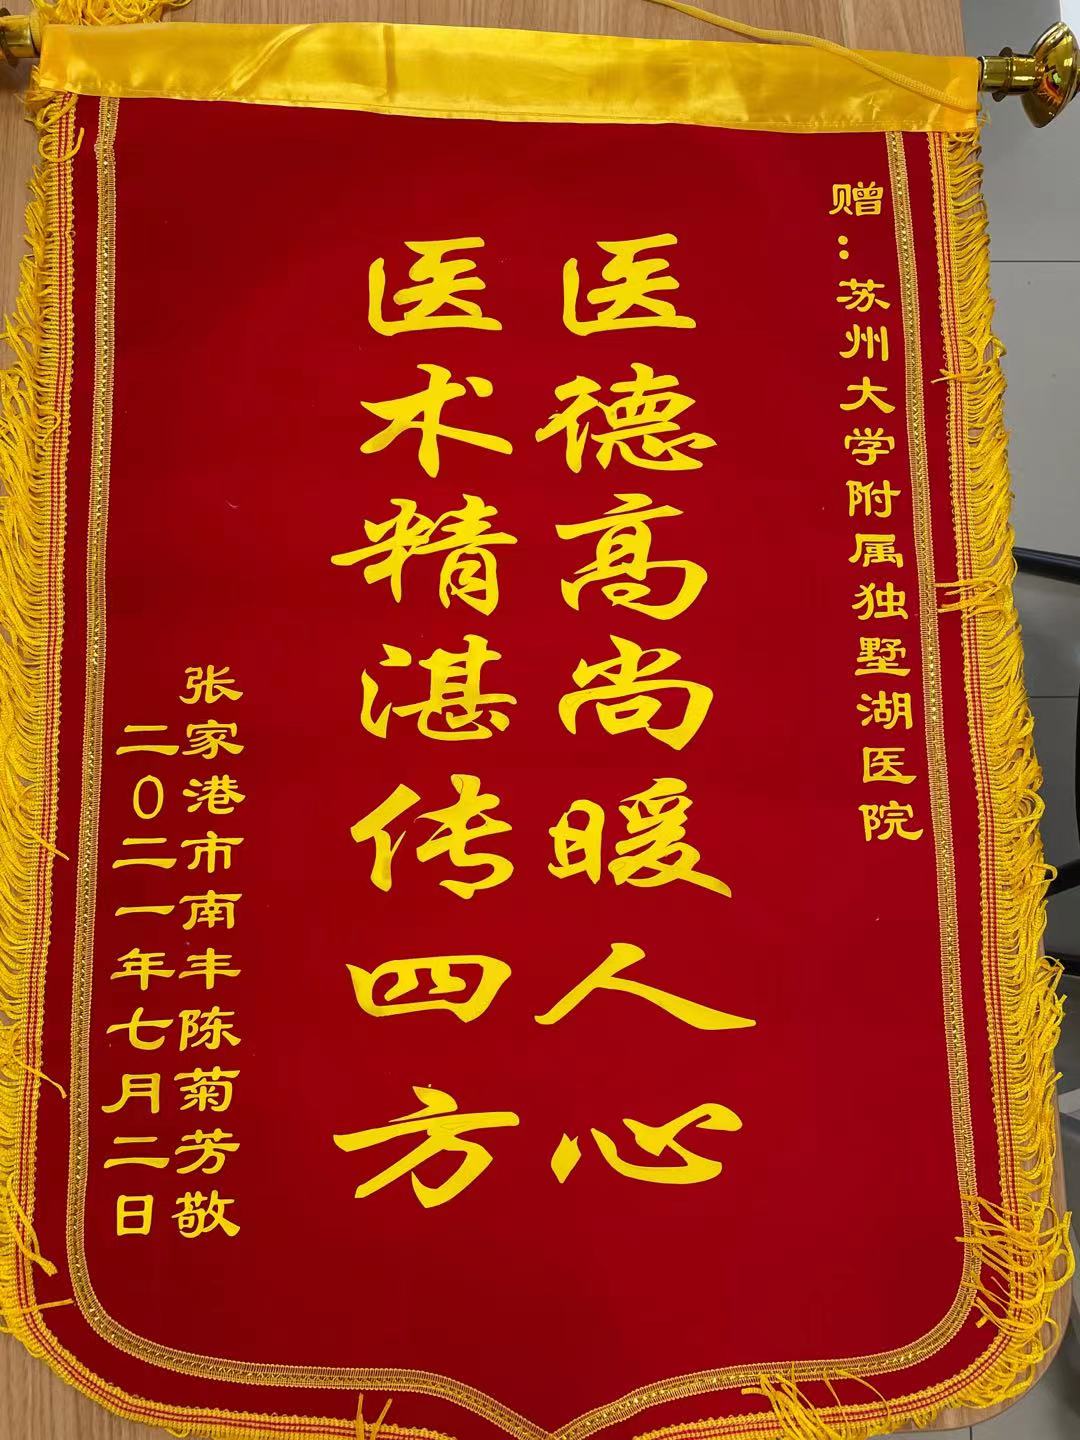 赠：苏州大学附属独墅湖医院
医德高尚暖人心
医术精湛传四方
张家港市南丰陈菊芳敬
二〇二一年七月二日